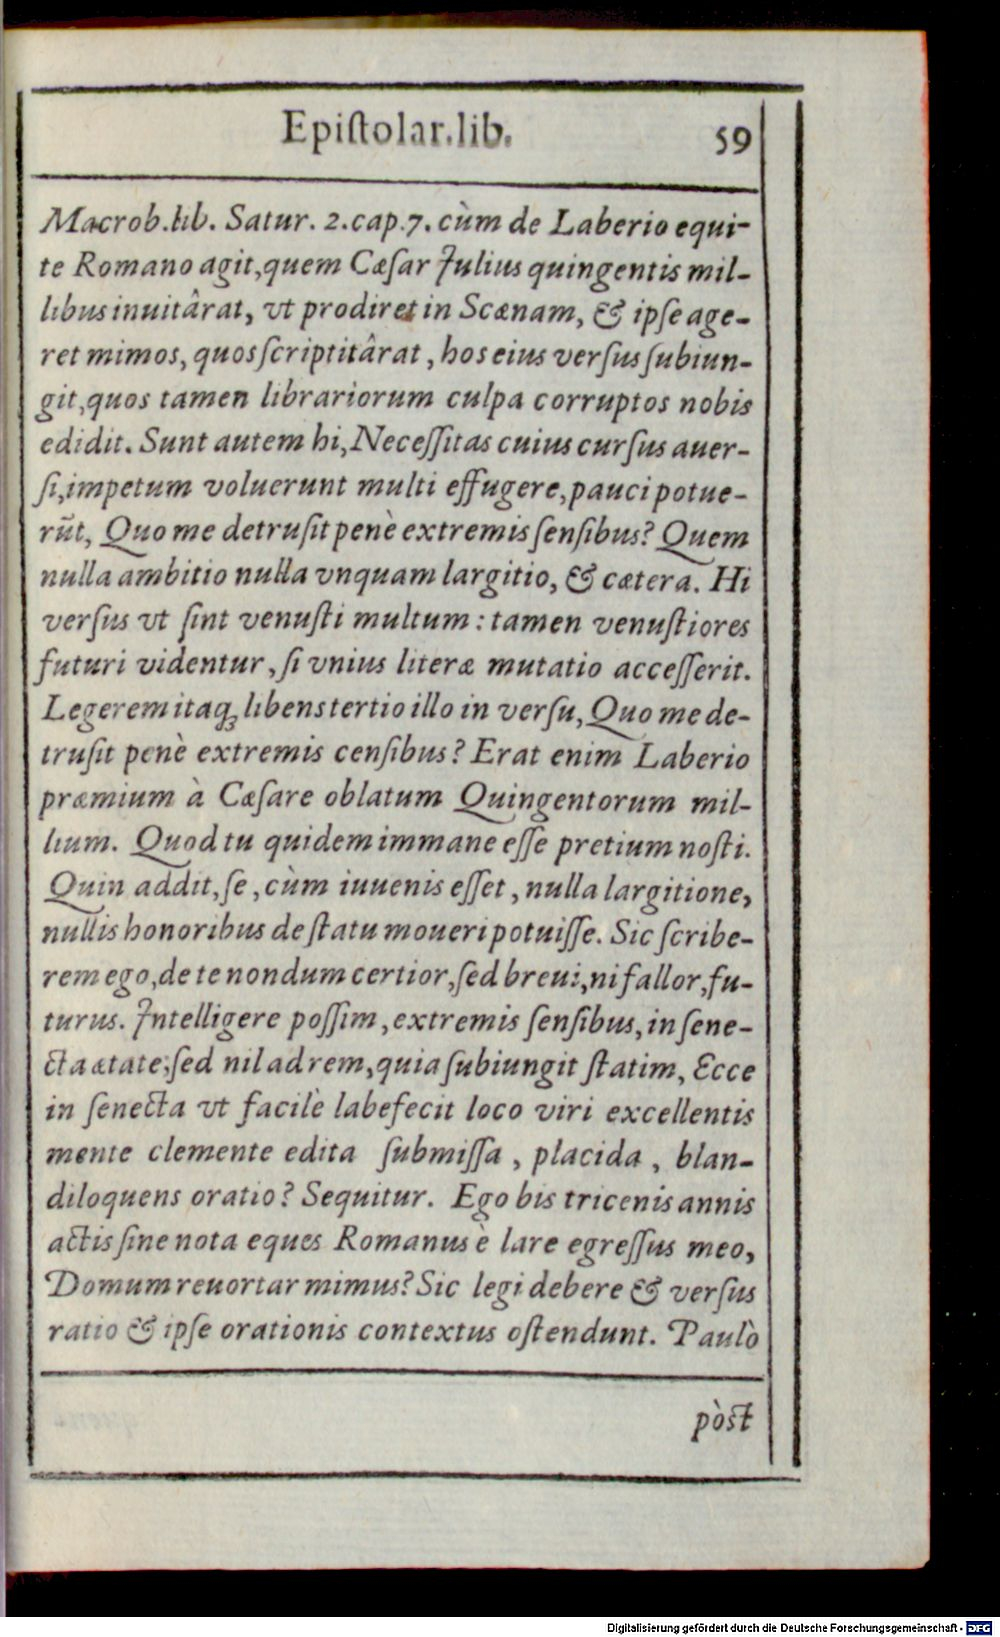 Epiſtolar.lib. 59
Macrob.lib. Satur. 2.cap.7. cùm de Laberio equi-
te Romano agit,quem Cæſar Julius quingentis mil-
libus inuitârat, vt prodiret in Scænam, & ipſe age-
ret mimos, quos ſcriptitârat, hos eius verſus ſubiun-
git,quos tamen librariorum culpa corruptos nobis
edidit. Sunt autem hi, Neceſſitas cuius curſus auer-
ſi,impetum voluerunt multi effugere,pauci potue-
rũt, Quo me detruſit penè extremis ſenſibus? Quem
nulla ambitio nulla vnquam largitio, & cætera. Hi
verſus vt ſint venuſti multum: tamen venuſtiores
futuri videntur, ſi vnius literæ mutatio acceſſerit.
Legerem itaq; libens tertio illo in verſu, Quo me de-
truſit penè extremis cenſibus? Erat enim Laberio
præmium à Cæſare oblatum Quingentorum mil-
lium. Quod tu quidem immane eſſe pretium noſti.
Quin addit, ſe, cùm iuuenis eſſet, nulla largitione,
nullis honoribus de ſtatu moueri potuiſſe. Sic ſcribe-
rem ego,de te nondum certior,ſed breui,ni fallor,fu-
turus. Intelligere poſſim, extremis ſenſibus, in ſene-
cta ætate;ſed nil ad rem,quia ſubiungit ſtatim, Ecce
in ſenecta vt facilè labefecit loco viri excellentis
mente clemente edita ſubmiſſa, placida, blan-
diloquens oratio? Sequitur. Ego bis tricenis annis
actis ſine nota eques Romanus è lare egreſſus meo,
Domum reuortar mimus? Sic legi debere & verſus
ratio & ipſe orationis contextus oſtendunt. Paulò
pòst
Digitalisierung gefördert durch die Deutsche Forschungsgemeinschaft - DFG